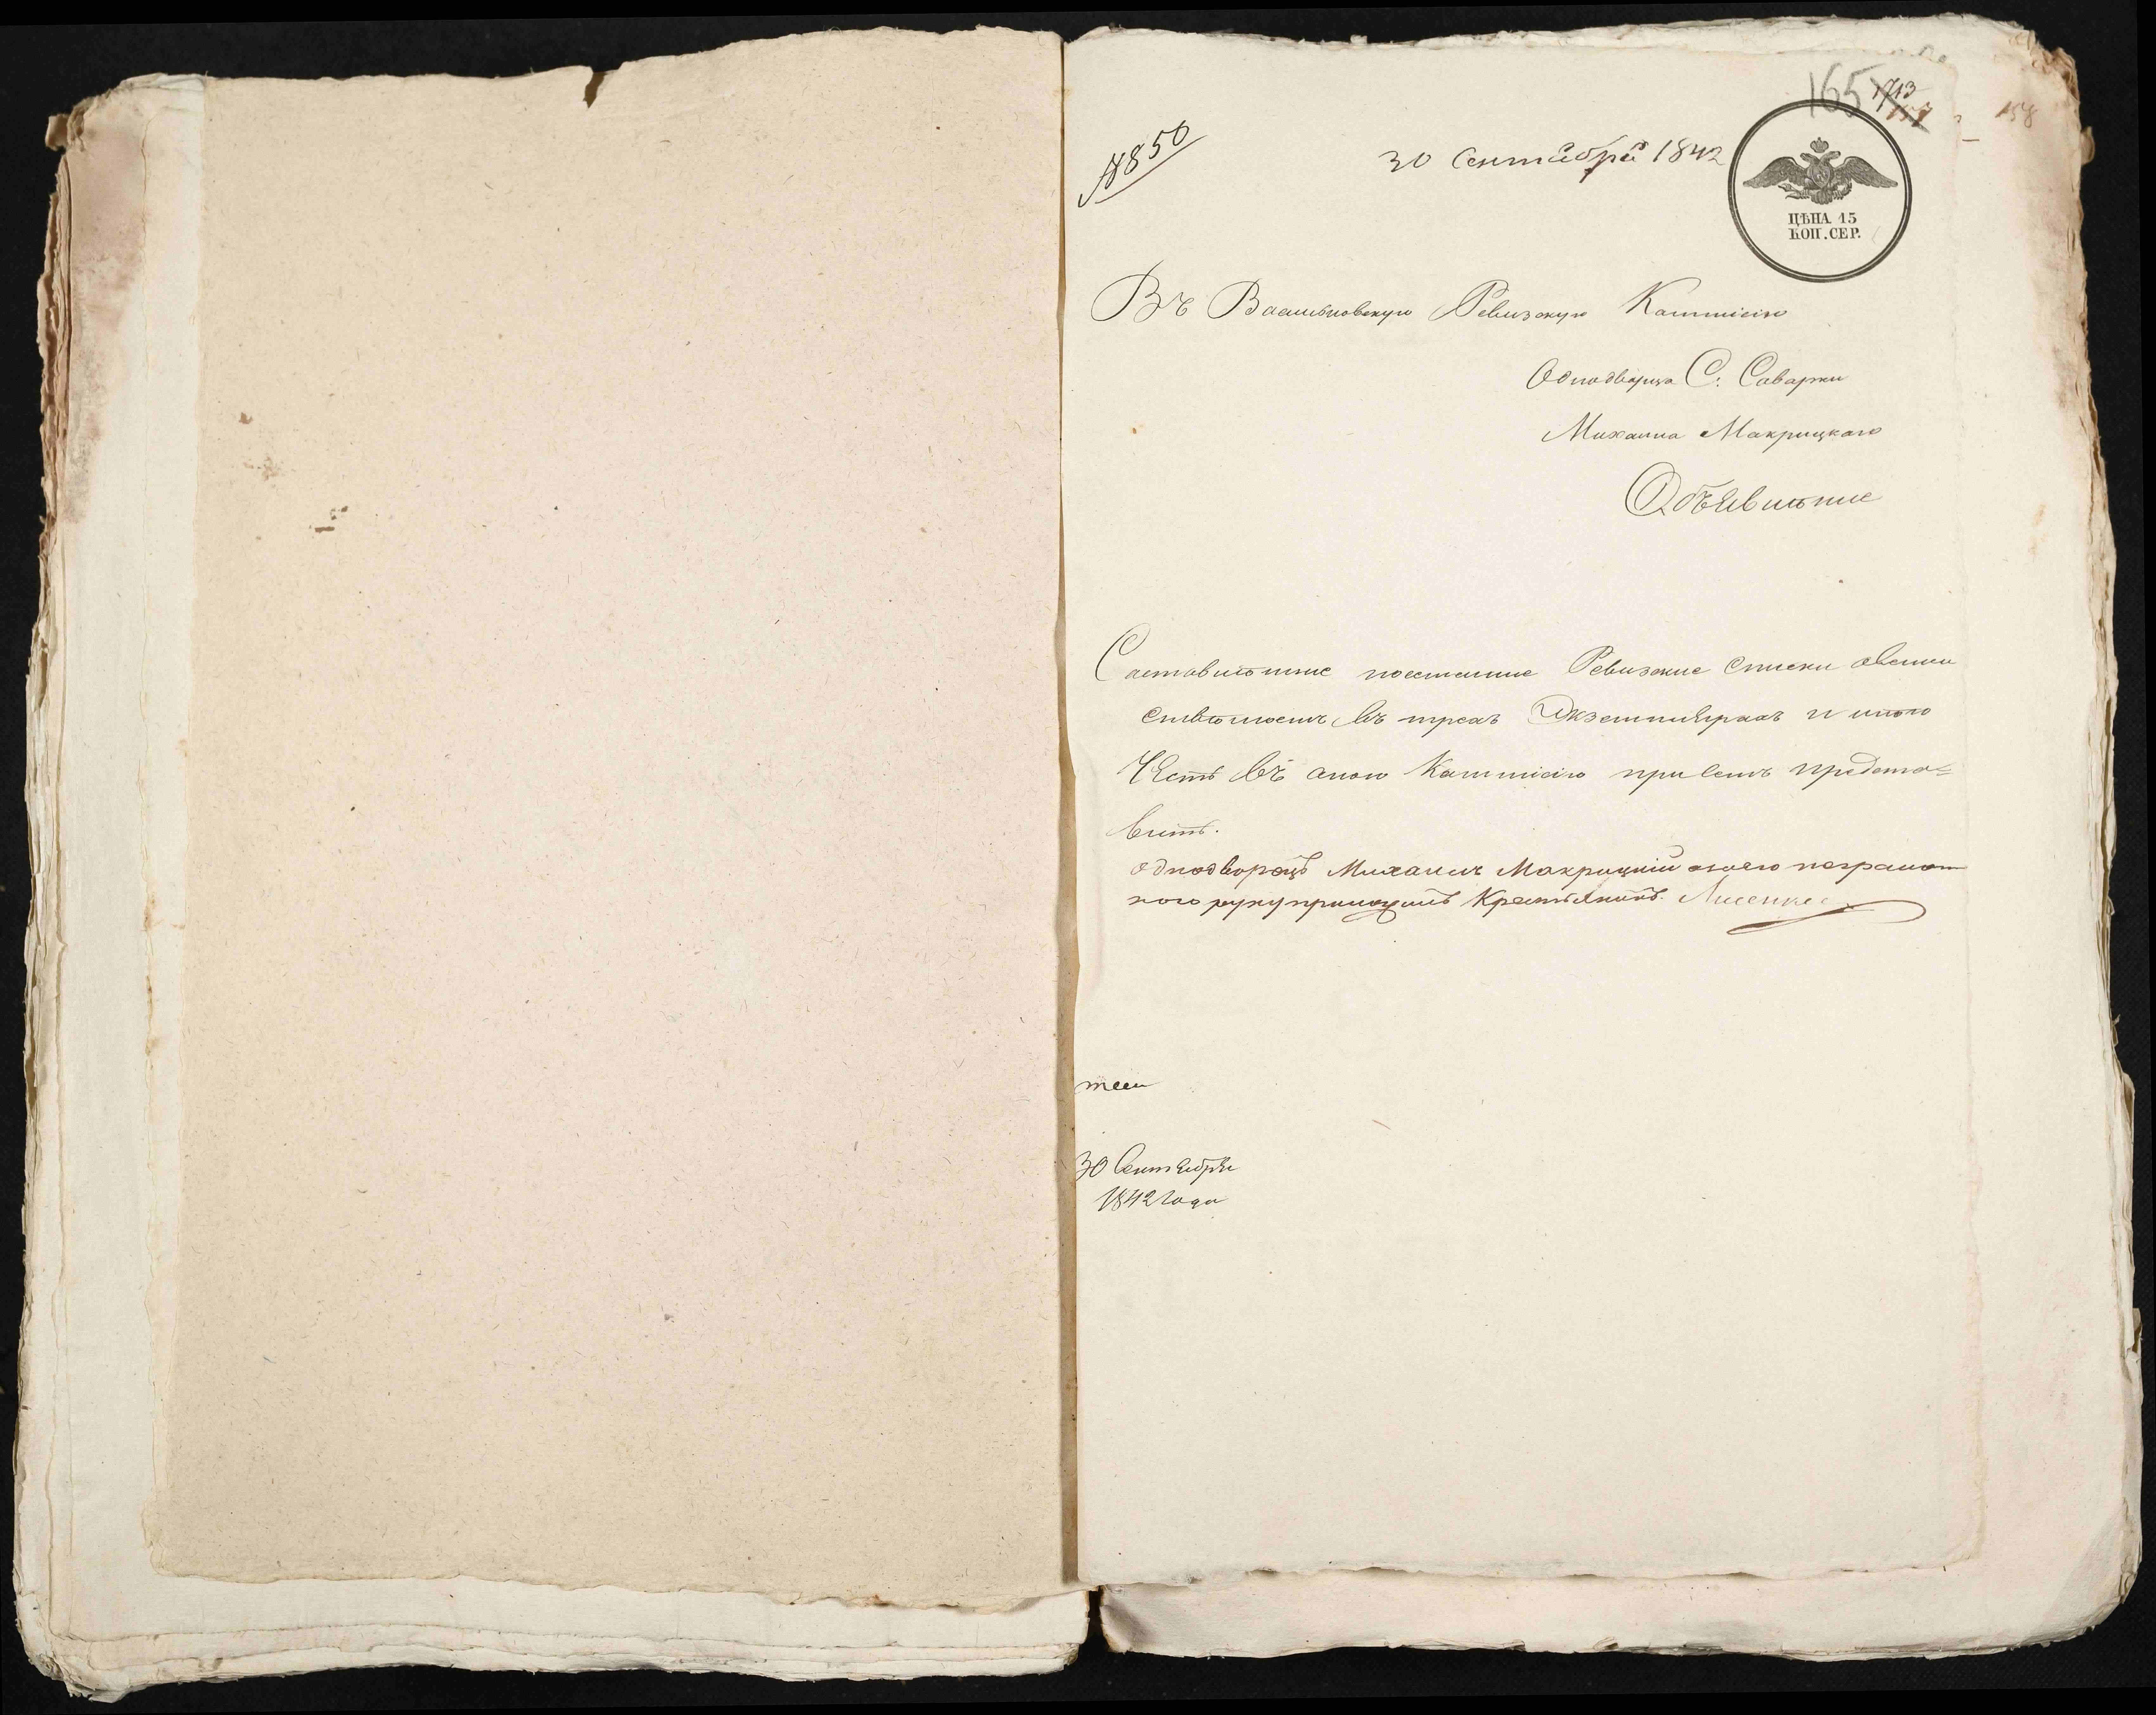 165 1713
157 158
№850
30 Сентября 1842
ЦѢНА 15
КОП. СЕР.
Въ Васильковскую Ревизскую Коммисію
Однодворца С. Саварки
Михаила Макрицкаго
Объявленіе
Составленные посемейные Ревизские Списки о своемъ
въ трехъ Экземплярахъ и имѣю
Честь въ оною Коммисію при семъ предста=
вить.
Однодворецъ Михаилъ Макрицкий а за него неграмот
ного руку приложилъ Крестьянинъ Лисенко
30 Сентября
1842 года